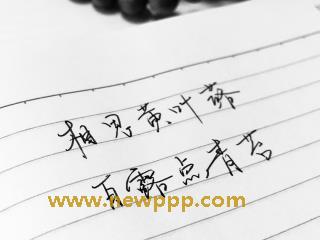 相思黄叶落
白露点青苔
www.newppp.com